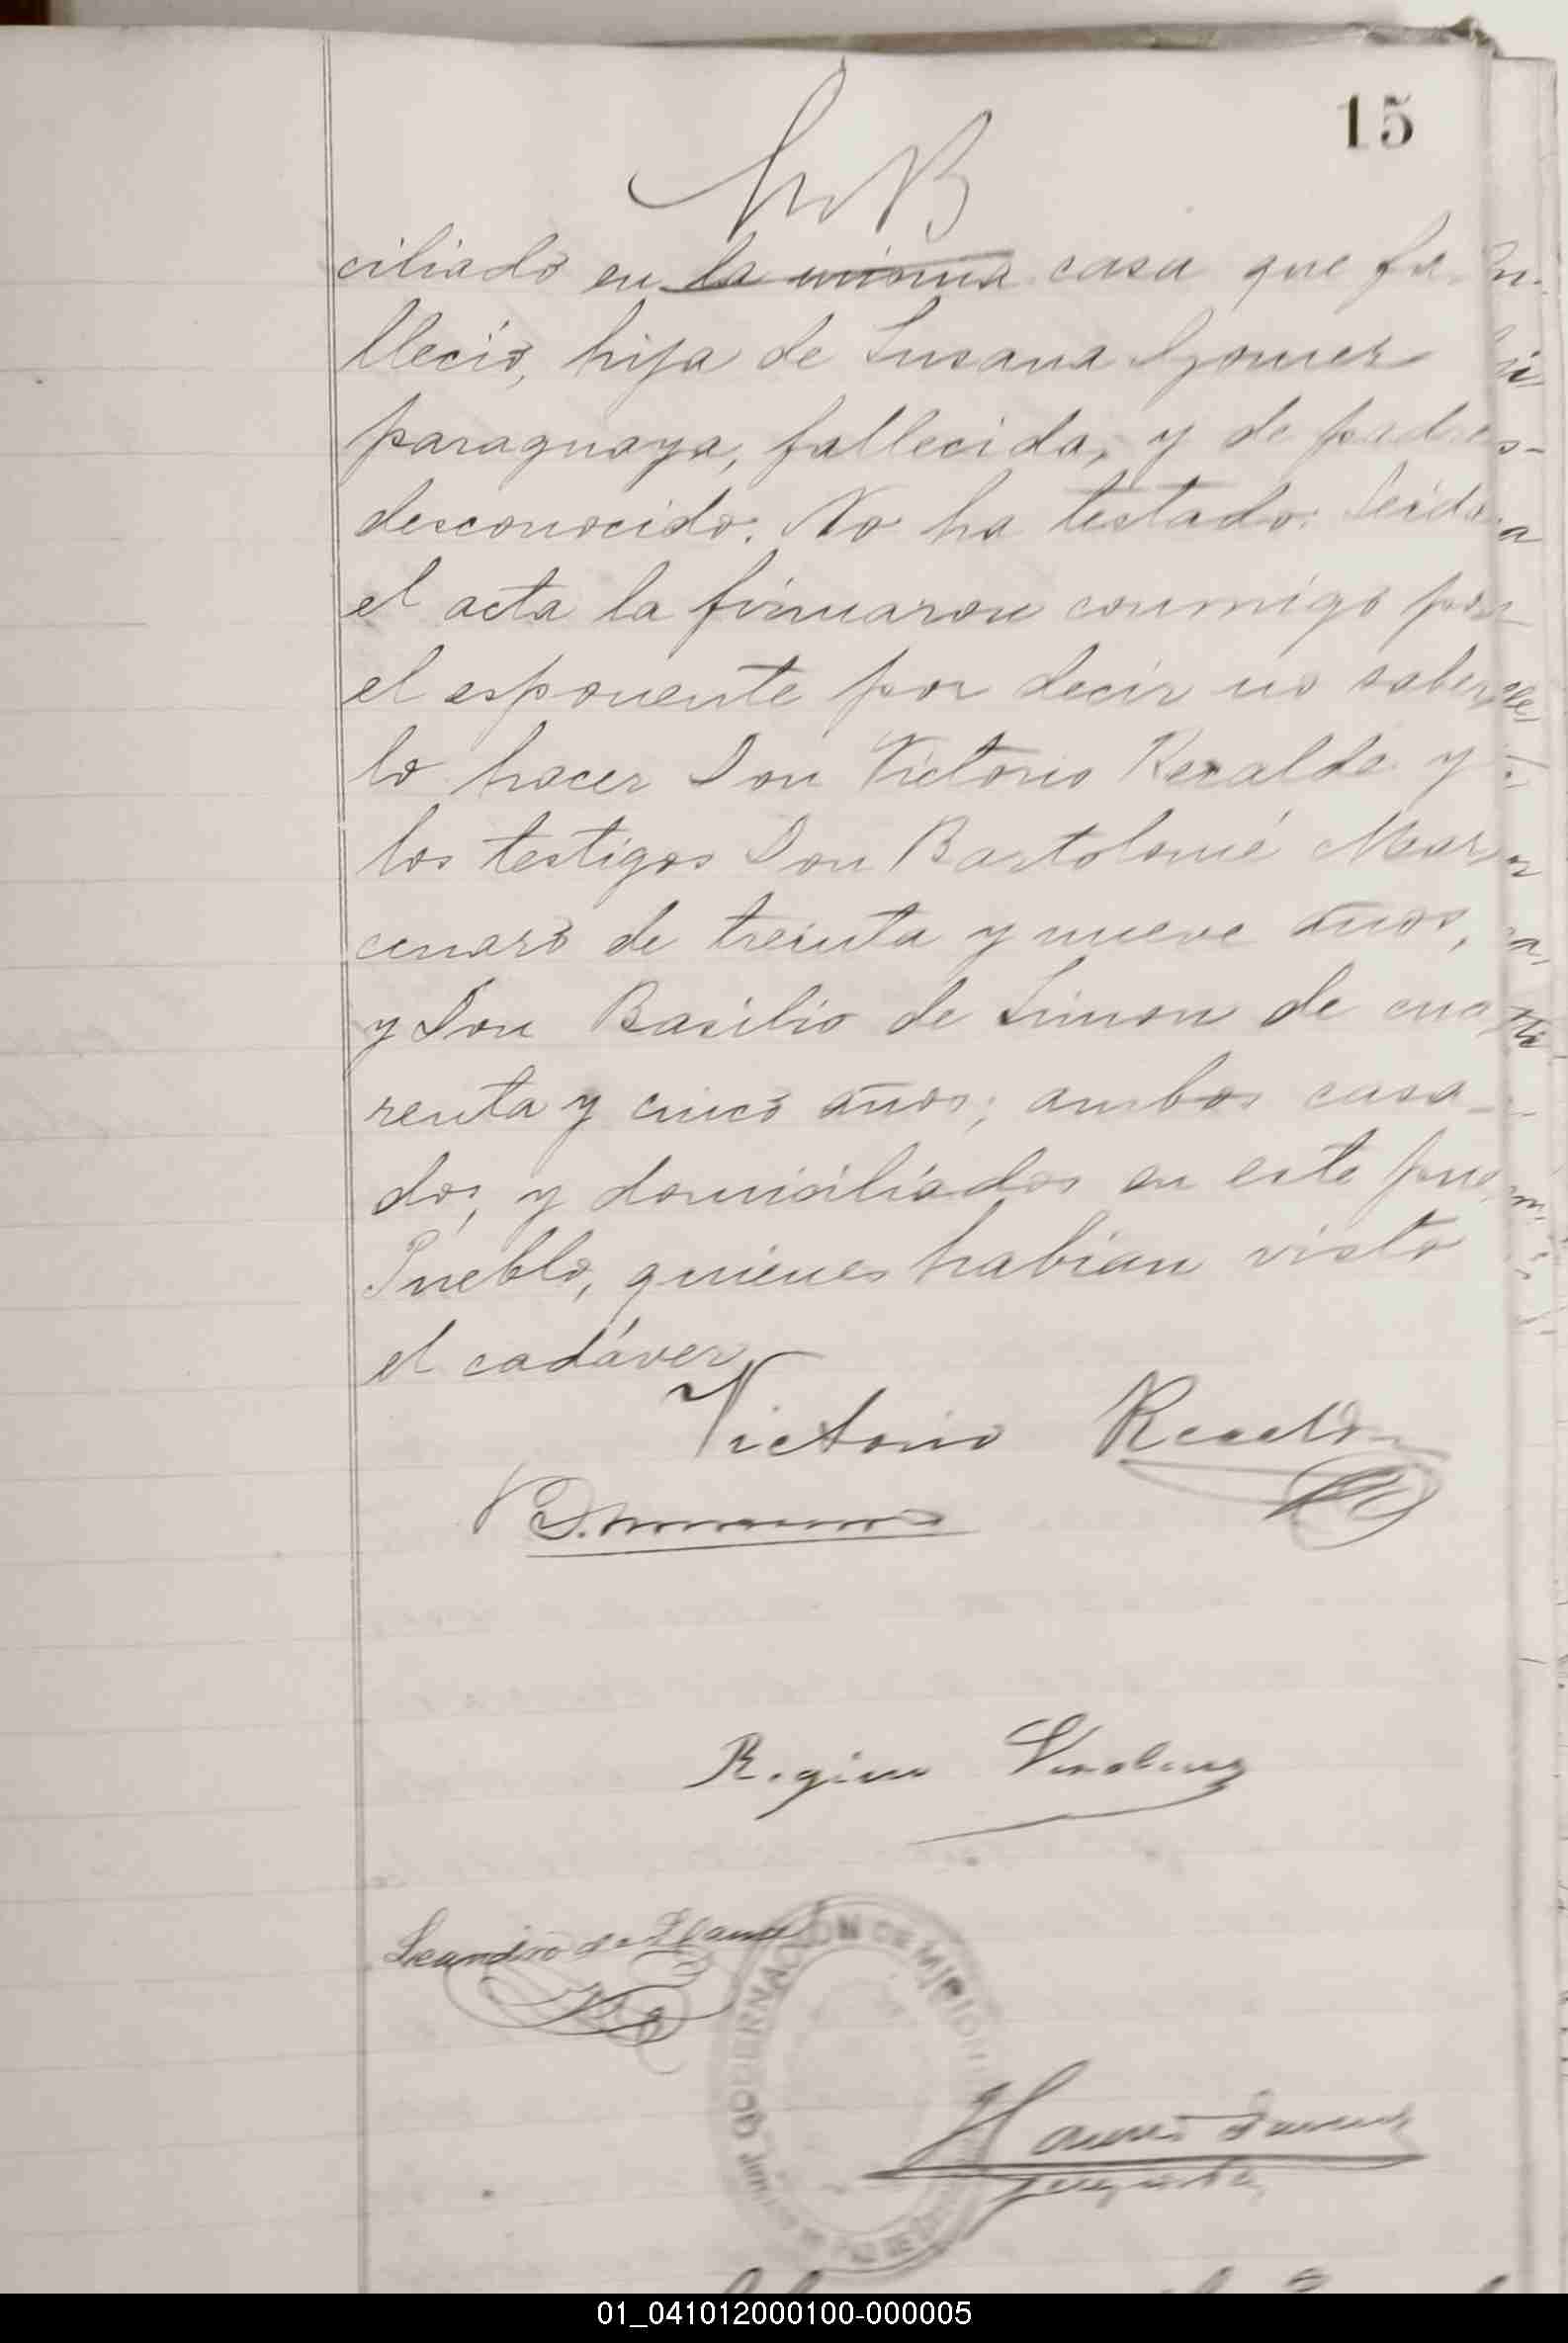 15
ciliado en la misma casa que fa-
lleció, hija de Susana Gomez
paraguaya, fallecida, y de padres
desconocido. No ha testado. Leida
el acta la firmaron conmigo por
el esponente por decir no saber
lo hacer Don Victorio Recalde y
los testigos Don Bartolomé Mar
cenaro de treinta y nueve años,
y Don Basilio de Simon de cua
renta y cinco años; ambos casa-
dos, y domiciliados en este pue
Pueblo, quienes habian visto
el cadáver
Victorio Recalde
Leandro de
GOBERNACION DE MISIONES
01_041012000100-000005